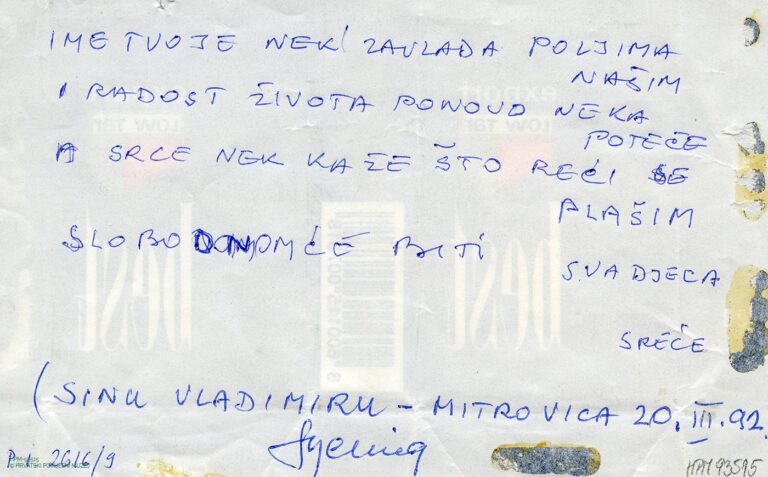 IME TVOJE NEK' ZAVLADA POLJIMA
NAŠIM
I RADOST ŽIVOTA PONOVO NEKA
POTEČE
A SRCE NEK KAŽE ŠTO REĆI SE
PLAŠIM
SLOBODNOM ĆE BITI
SVA DJECA
SREĆE
(SINU VLADIMIRU - MITROVICA 20. III. 92.
2616/9
© HRVATSKI POVIJESNI MUZEJ
HPM 93515
best
best
export
LOW TAR
LOW TAR